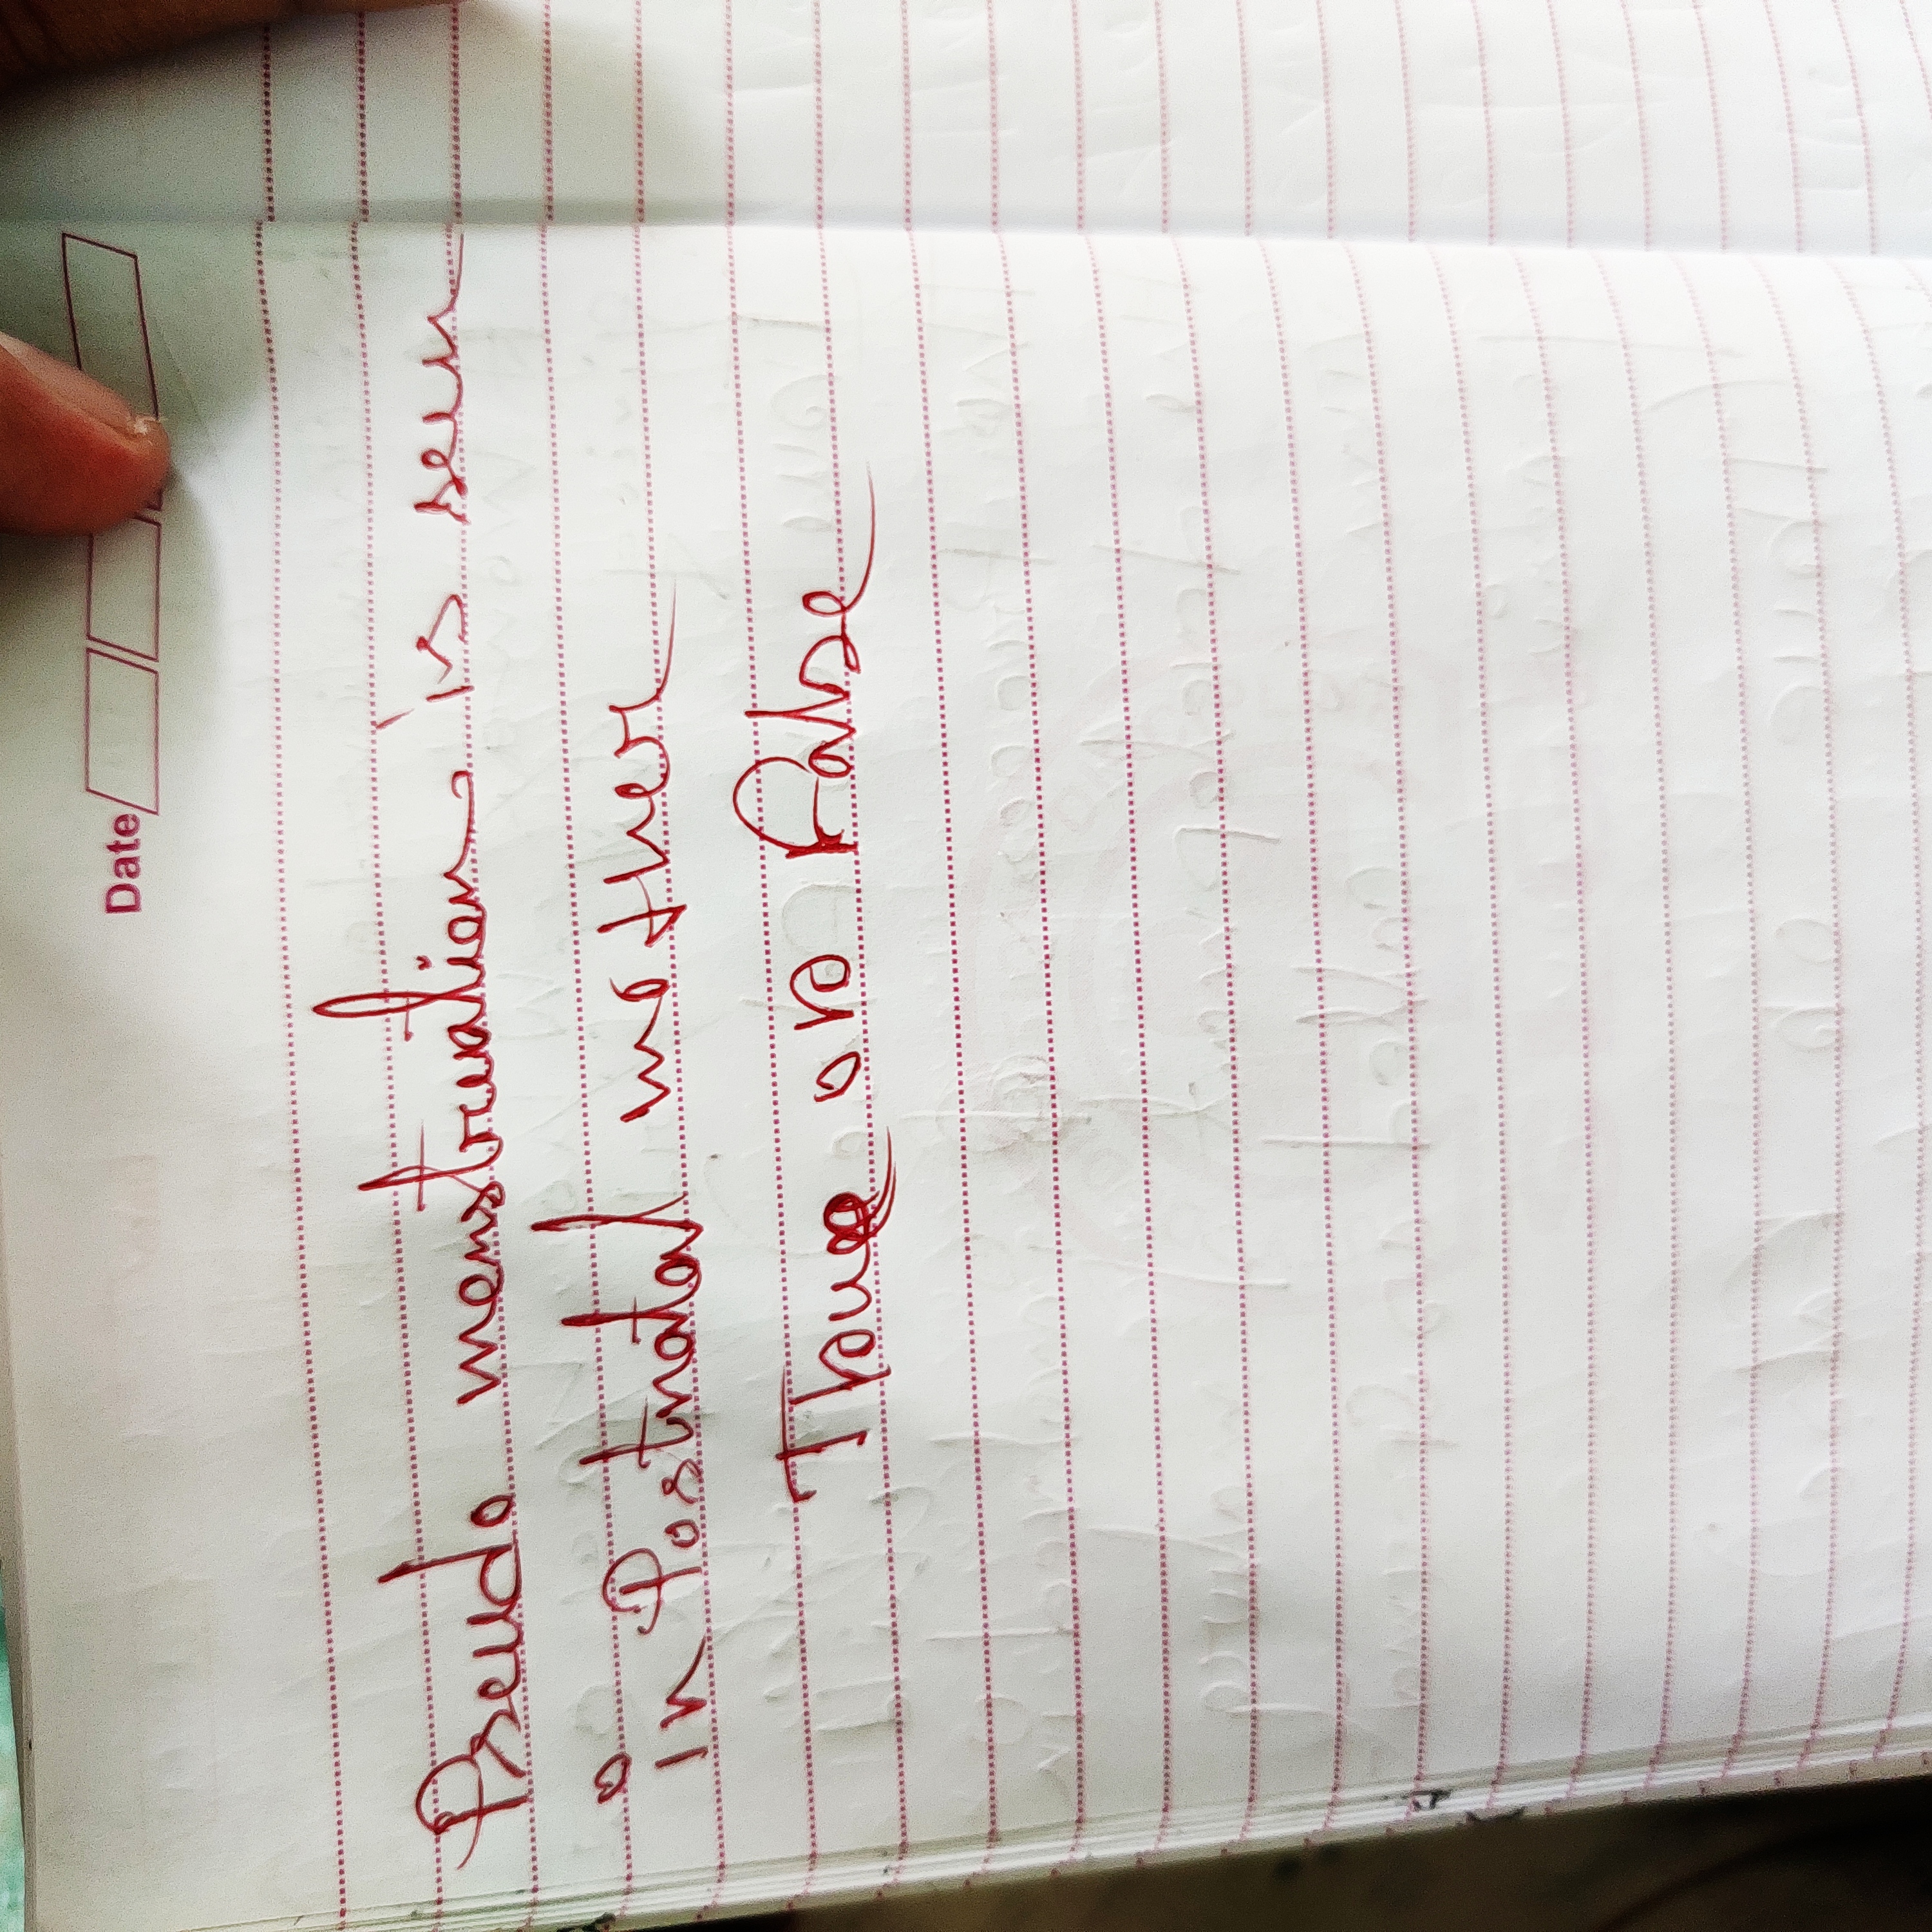 Date
Pseudo menstruation is seen
in Postnatal mother
True or False